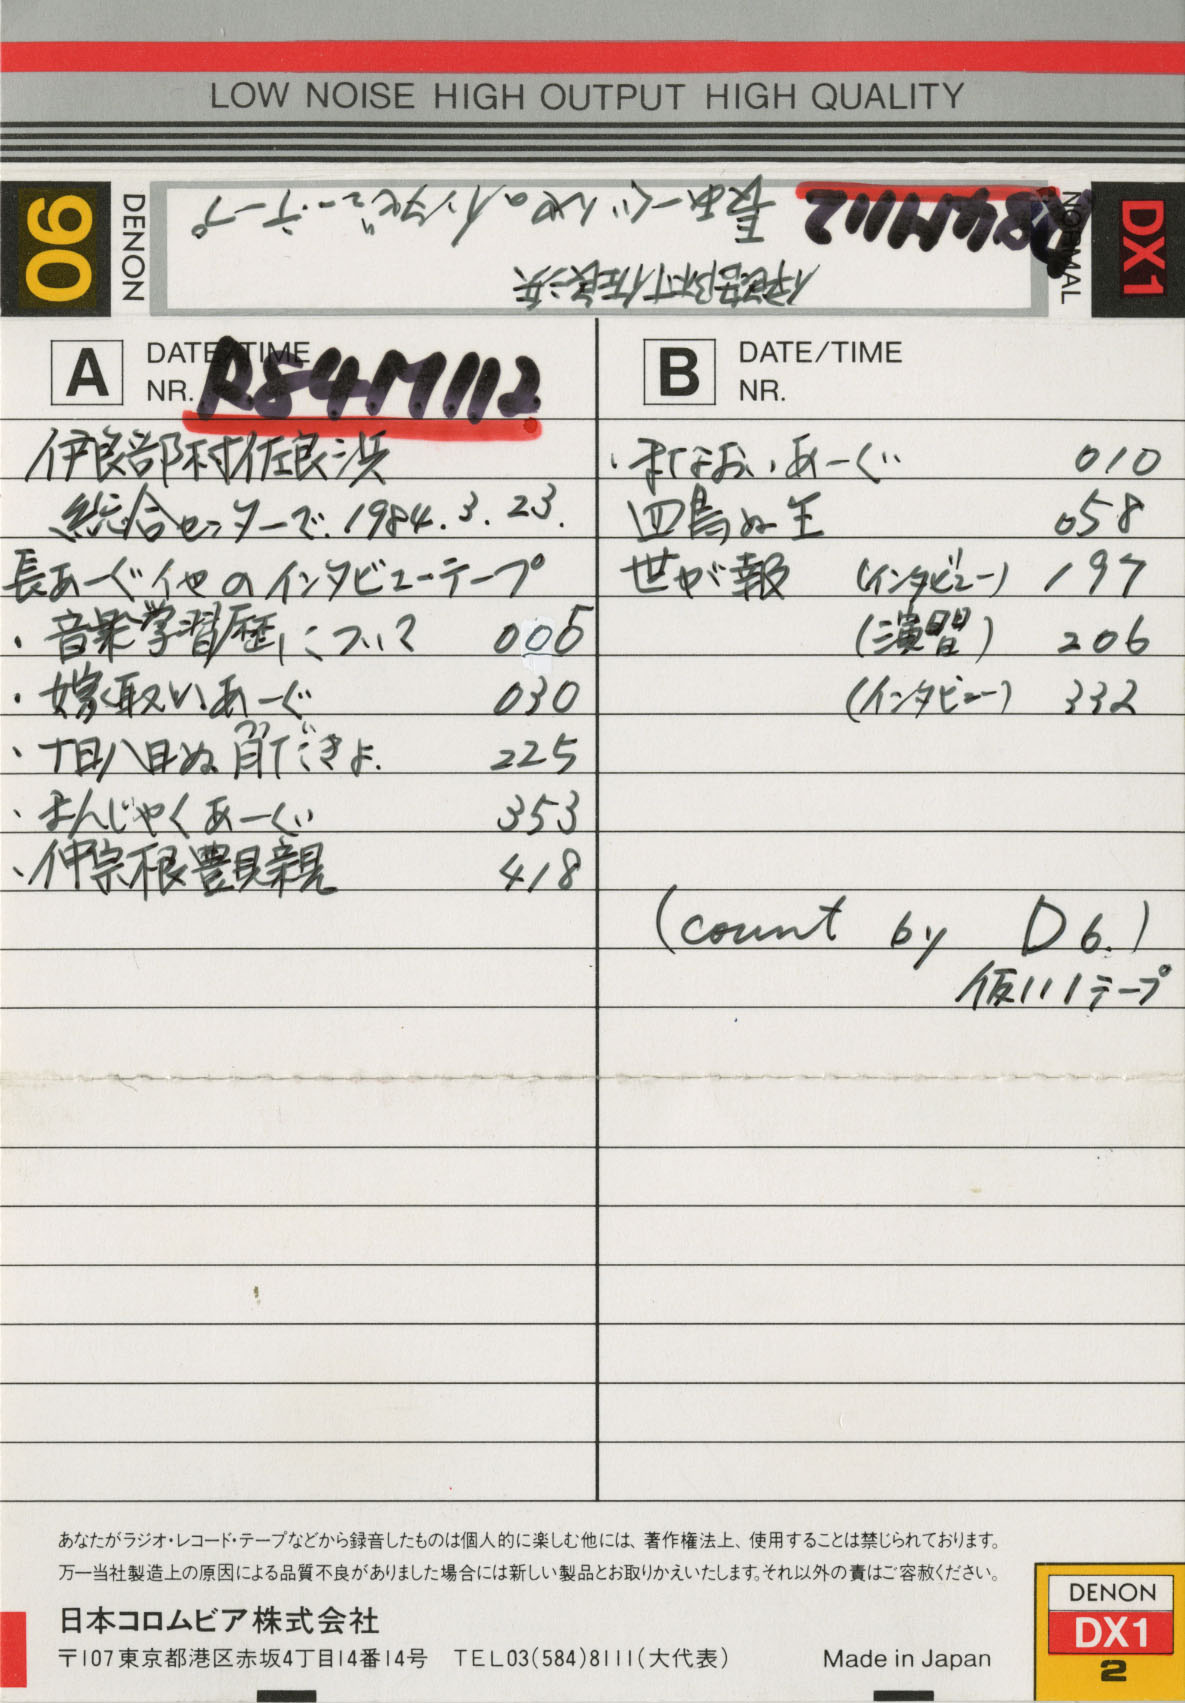 LOW NOISE HIGH OUTPUT HIGH QUALITY
90
DENON
R84M112 長あーぐ他のインタビューテープ
伊良部村佐良浜
NORMAL
DX1
A DATE/TIME
NR. R84M112
伊良部村佐良浜
総合センターで. 1984. 3. 23.
長あーぐ他のインタビューテープ
・音楽学習歴について 005
・嫁取いあーぐ 030
・十日八日ぬ 225
・まんじゃくあーぐ 353
・仲宗根豊見親 418
B DATE/TIME
NR.
・まなおいあーぐ 010
四島ぬ主 058
世が報 (インタビュー) 197
(演習) 206
(インタビュー) 332
(count by D6.)
仮111テープ
あなたがラジオ・レコード・テープなどから録音したものは個人的に楽しむ他には、著作権法上、使用することは禁じられております。
万一当社製造上の原因による品質不良がありました場合には新しい製品とお取りかえいたします。それ以外の責はご容赦ください。
日本コロムビア株式会社
〒107東京都港区赤坂4丁目14番14号 TEL03(584)8111(大代表) Made in Japan
DENON
DX1
2